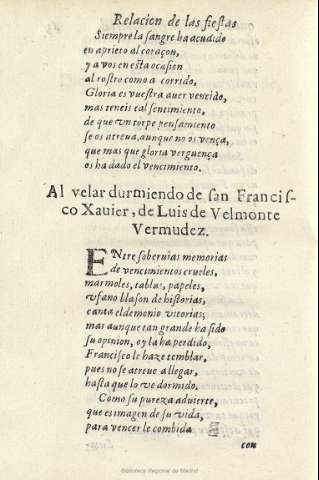 Relacion de las fiestas
Siempre la sangre ha acudido
en aprieto al coraçon,
y a vos en esta ocasion
al rostro como a corrido,
Gloria es vuestra auer vencido,
mas teneis tal sentimiento,
de que vn torpe pensamiento
se os atreua, aunque no os vença,
que mas que gloria verguença
os ha dado el vencimiento.
Al velar durmiendo de san Francis-
co Xauier, de Luis de Velmonte
Vermudez.
ENtre soberuias memorias
de vencimientos crueles,
marmoles, tablas, papeles,
vfano blason de historias,
canta el demonio vitorias;
mas aunque tan grande ha sido
su opinion, oy la ha perdido,
Francisco le haze temblar,
pues no se atreue a llegar,
hasta que lo ve dormido.
Como su pureza aduierte,
que es imagen de su vida,
para vencerle combida
con
Biblioteca Regional de Madrid